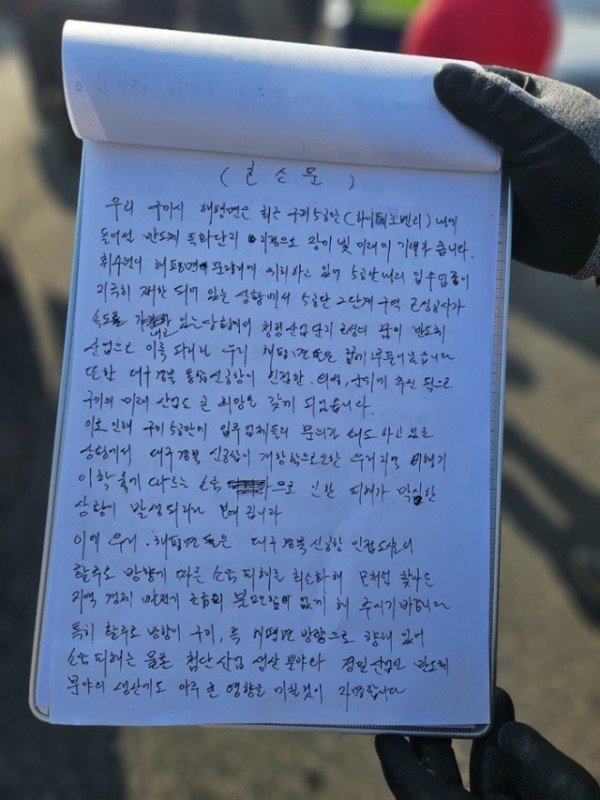 ( 호소문 )
우리 구미시 해평면은 최근 구미5공단(하이테크밸리)내에
들어선 반도체 특화단지 지정으로 장미빛 미래에 기대가 큽니다.
취수원이 해평면에 위치하고 있어 5공단내의 입주업종이
극히 제한 되어 있는 상황에서 5공단 2단계 구역 조성공사가
속도를 내고 있는 상황에서 첨단산업단지 조성의 꿈이 반도체
산업으로 이룩 되리라 우리 해평면민은 꿈에 부풀어 있습니다
또한 대구경북 통합신공항이 인접한 의성,군위에 추진 됨으로
구미의 미래 산업도 큰 희망을 갖게 되었습니다.
이로 인해 구미5공단에 입주업체들의 문의가 쇄도 하고 있는
상황에서 대구경북 신공항이 개항함으로 우리지역 비행기
이착륙기 따르는 소음 으로 인한 피해가 막심한
상황이 발생되리라 보여 집니다
이에 우리 해평면민은 대구경북신공항 인접도시로서
활주로 방향에 따른 소음피해를 최소화해 모처럼 찾아온
지역 경제 발전에 불편함이 없게 해 주시기 바랍니다
특히 활주로 방향이 구미, 즉 해평면 방향으로 향해 있어
소음피해는 물론 첨단산업 생산분야와 정밀산업인 반도체
분야의 생산에도 아주 큰 영향을 미칠것이 자명합니다